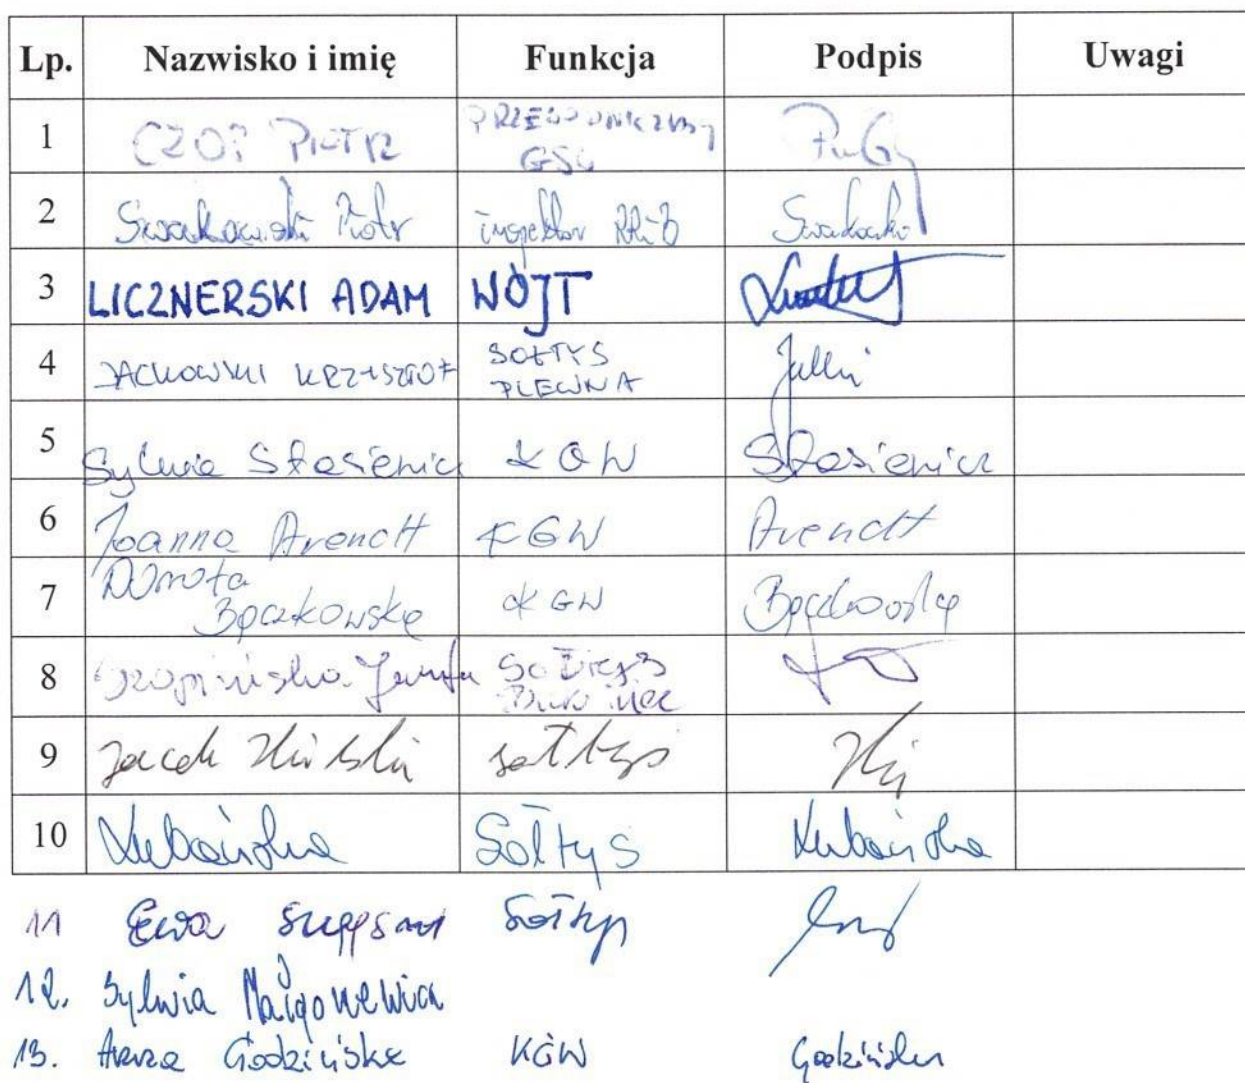 Lp. Nazwisko i imię Funkcja Podpis Uwagi
1 CZOP PIOTR PRZEWODNICZĄCY
GSG
2 Swakowski Piotr inspektor Swakowski
3 LICZNERSKI ADAM WÓJT
4 JACKOWSKI KRZYSZTOF SOŁTYS
PLEWNA
5 Sylwia Stasiewicz KGW Stasiewicz
6 Joanna Arendt KGW Arendt
7 Dorota
Bączkowska KGW Bączkowska
8 Sołtys
9 Jacek sołtys
10 Lubańska Sołtys Lubańska
11 Ewa Sołtys
12. Sylwia
13. Anna Godzińska KGW Godzińska